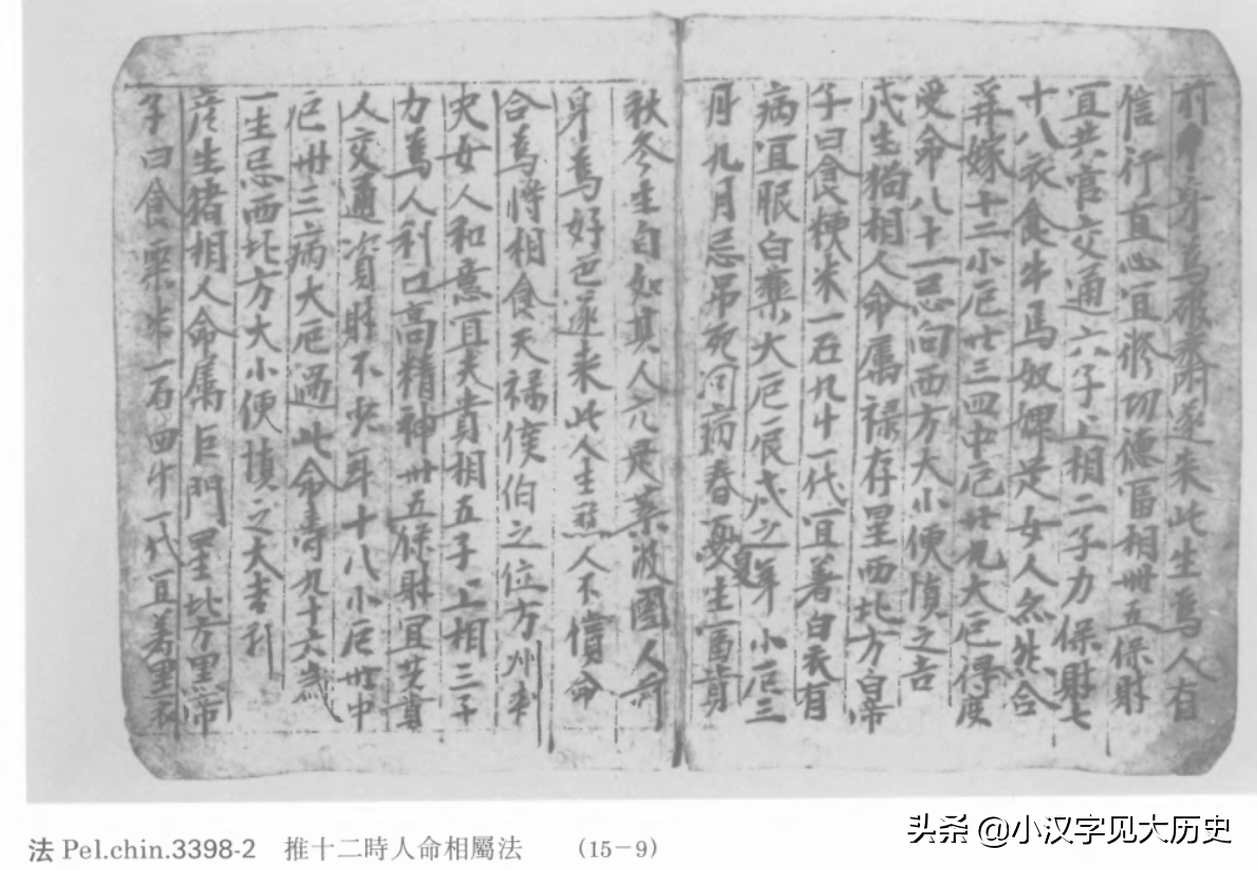 前身為破齋遂来此生為人有
信行直心宜修功德富相卌五保財
宜共官交通六子上相二子力保財七
十八衣食牛馬奴婢足女人合
再嫁十二小厄廿三四中厄廿九大厄得度
受命八十一忌向西方大小便慎之吉
戌生猪相人命属禄存星西北方白帝
子日食粳米一石九十一代宜著白衣有
病宜服白藥大厄辰戌之年小厄三
月九月忌吊死问病春夏生富貴
秋冬生自如其人元是波國人前
身為好色遂来此生為人不償命
合為將相食天禄侯伯之位方州刺
史女人和意宜夫貴相五子上相三子
力為人利口高精神卌五保財宜共貴
人交通資財不少年十八小厄卅中
厄卌三病大厄過此命壽九十六歲
一生忌西北方大小便慎之大吉利
亥生猪相人命属巨門星北方黑帝
子日食粟米一石四斗一代宜著黑衣
法 Pel.chin.3398-2 推十二時人命相屬法 (15-9)
头条 @小汉字见大历史